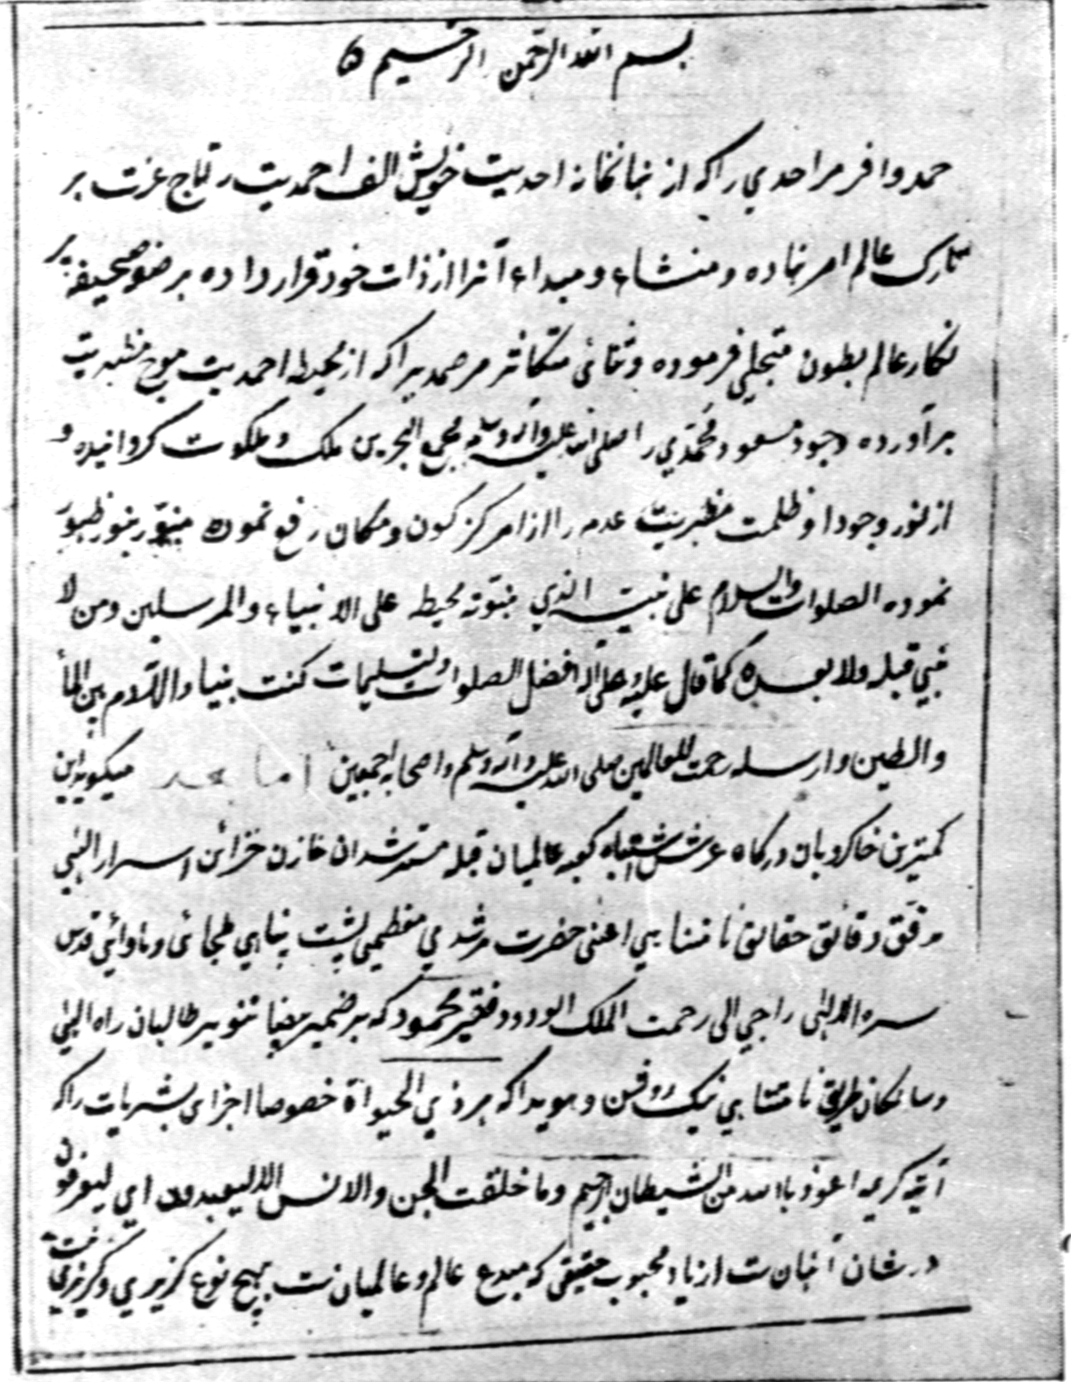 بسم الله الرحمن الرحيم
حمد وافر مر احدي را كه از نهانخانه احديت خويش الف احمديت را بتاج عزت بر
تارك عالم امر نهاده و منشاء و مبداء آنرا از ذات خود قرار داده بر صحيفه پر
نكار عالم بطون متجلي فرموده و ثنائ متكاثر مر صمديرا كه از محيط احمديت موج مظهريت
برآورده وجود مسعود محمدي را صلي الله عليه وآله وسلم مجمع البحرين ملك و ملكوت كردانيده و
از نور وجود او ظلمت عدم را از مركز كون و مكان رفع نموده منور بنور ظهور
نموده الصلوات والسلام على نبيه الذي نبوته محيطه على الانبياء والمرسلين ومن لا
نبي قبله ولا بعده كما قال عليه وعلى آله افضل الصلوات والتسليمات كنت نبيا وآدم بين الماء
والطين وارسله رحمت للعالمين صلى الله عليه وآله وسلم واصحابه اجمعين اما بعد ميكويد اين
كمترين خاكروبان دركاه عرش اشتباه كعبه عالميان قبله مسترشدان خازن خزائن اسرار الهي
مدقق دقائق حقائق نامتناهي اعني حضرت مرشدي معظمي پشت پناهي ملجائي و ماوائي قدس
سره الالهى راجي الى رحمت الملك الودود فقير محمود كه بر ضمير تنوير طالبان راه الهي
و سالكان طريق نامتناهي نيك روشن و هويدا كه هر ذي الحيواة خصوصا اجزاى بشريات را كه
آيه كريمه اعوذ بالله من الشيطان الرجيم وما خلقت الجن والانس الا ليعبدون اي ليعرفون
در شان آنهانست از ياد محبوب حقيقي كه مبدع عالم و عالميانست بهيچ نوع كزيري و كريزي نيست